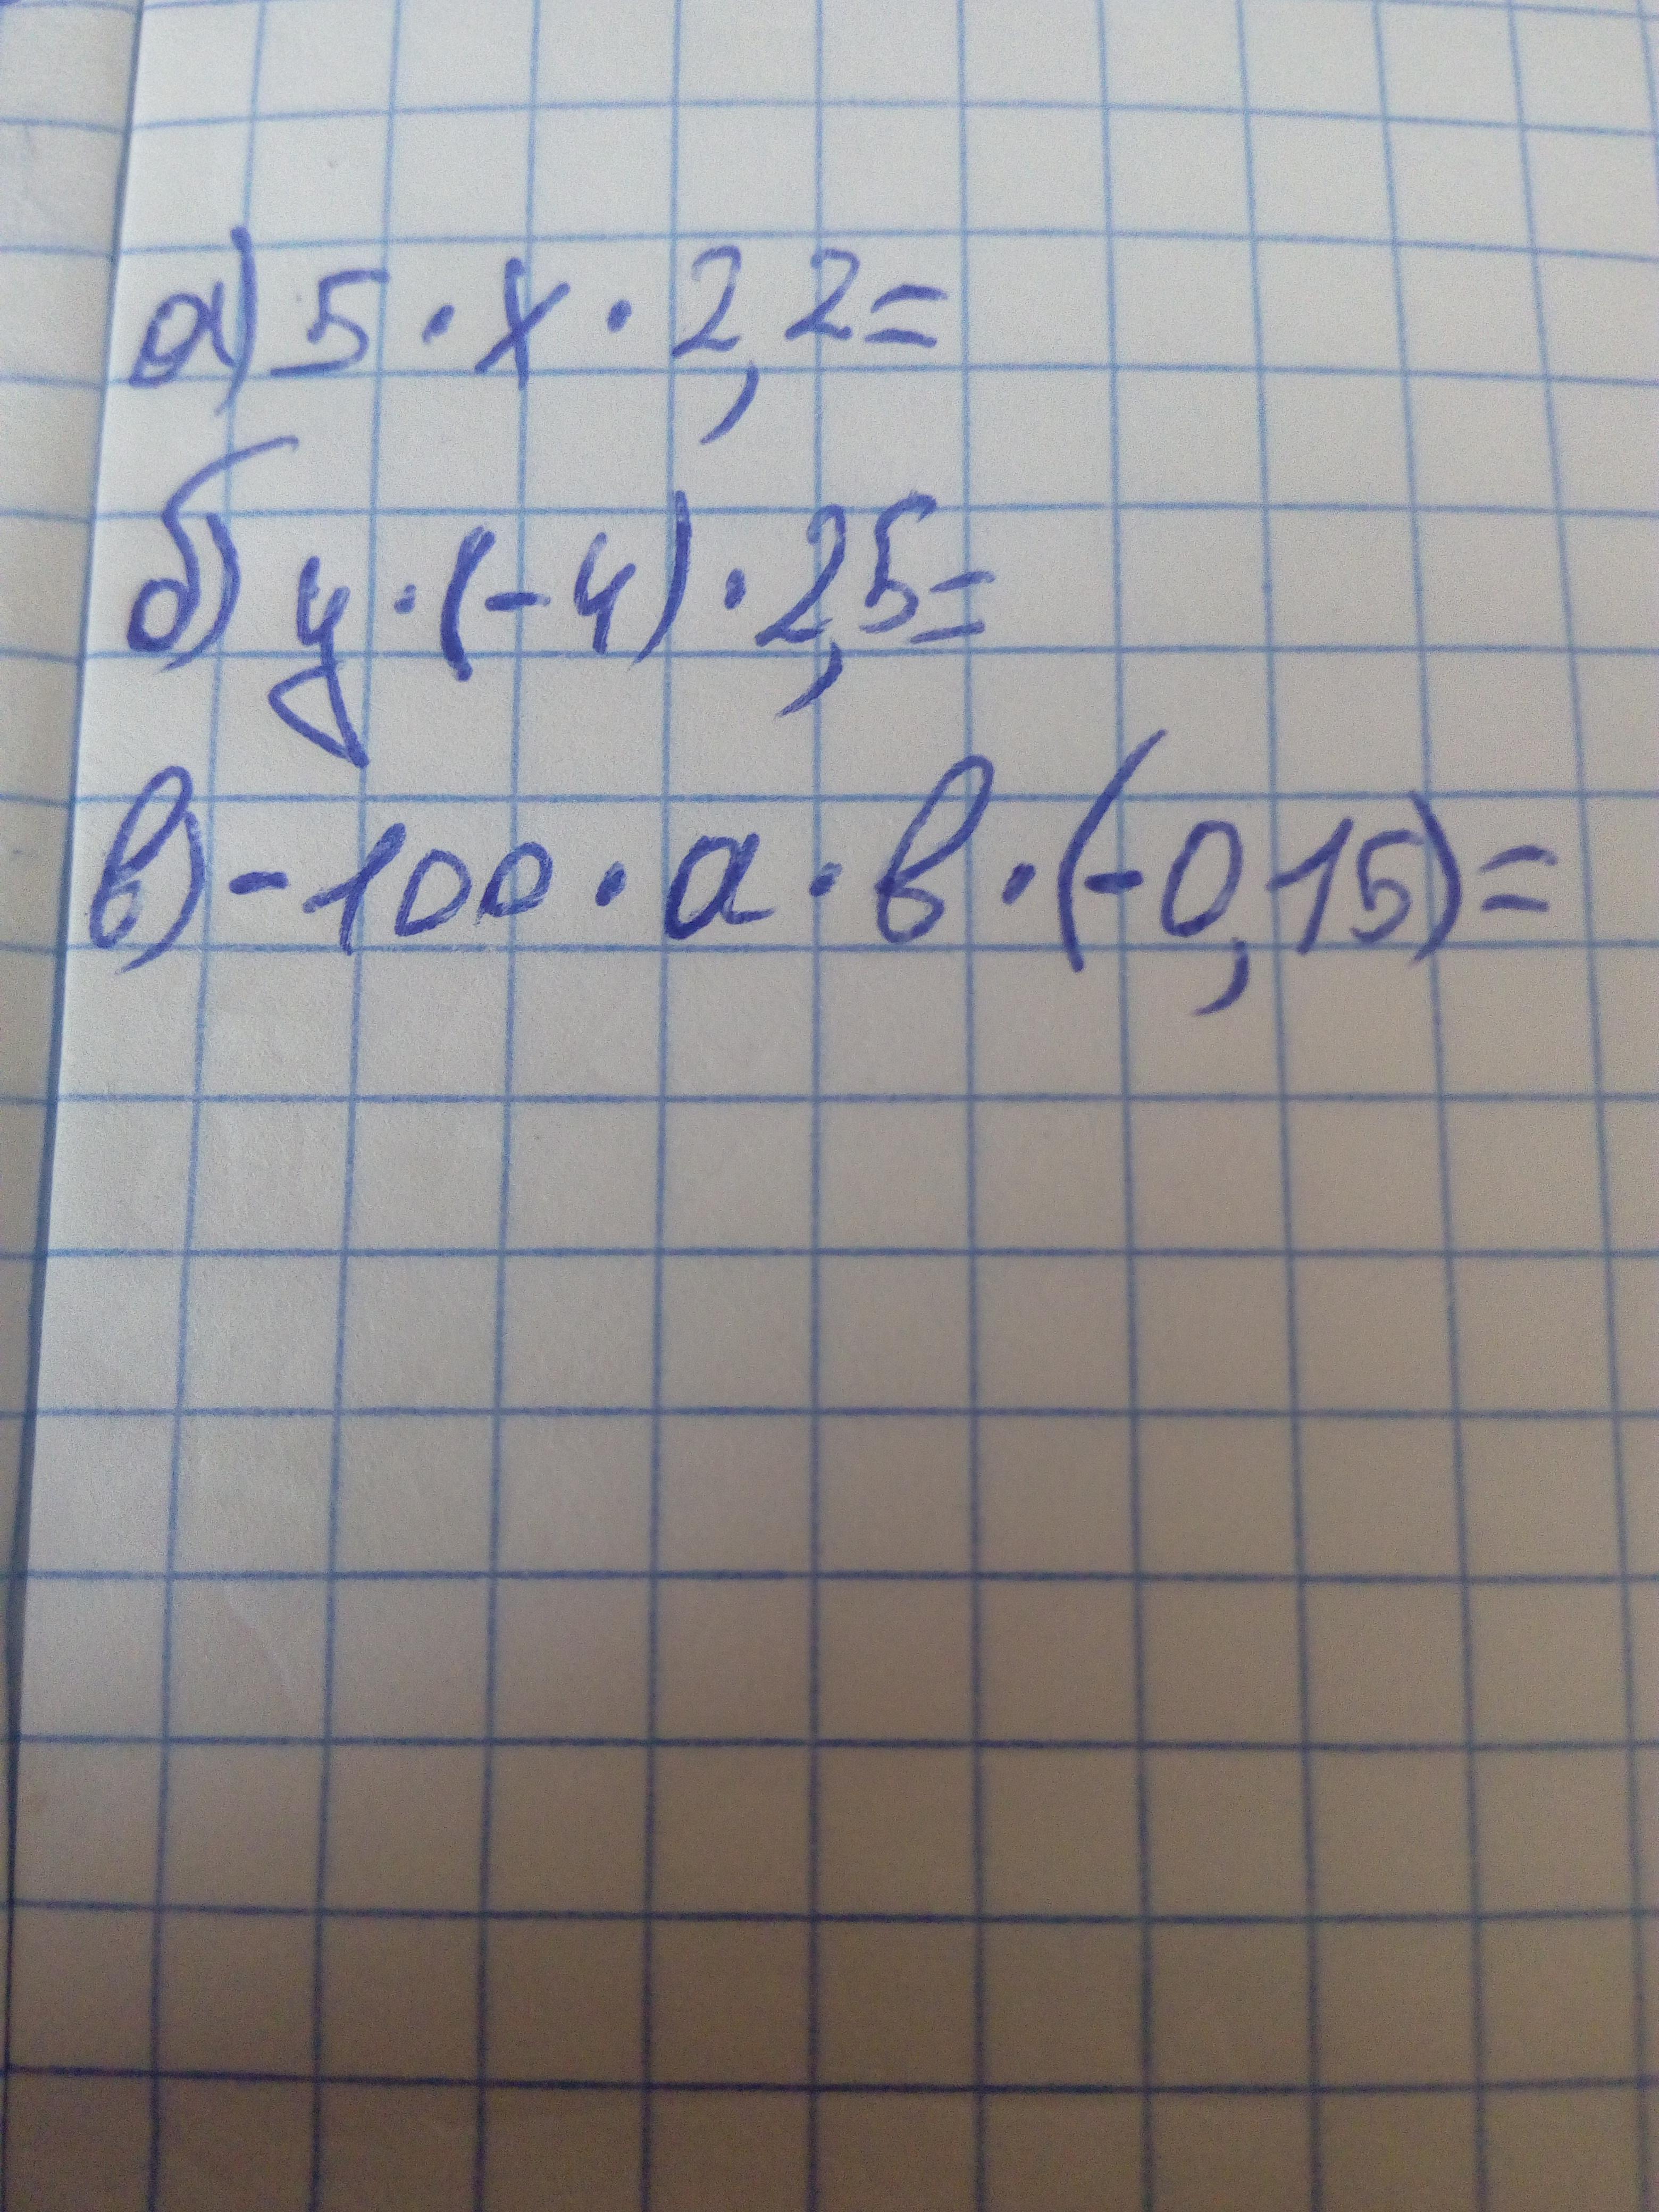 а) 5 · x · 2,2 =
б) y · (-4) · 2,5 =
в) -100 · a · b · (-0,15) =